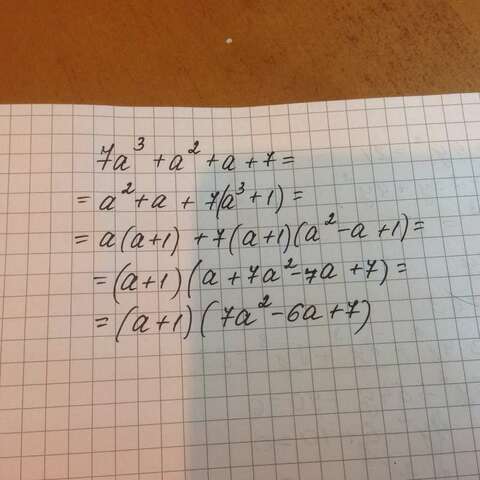 7a³ + a² + a + 7 =
= a² + a + 7(a³ + 1) =
= a(a+1) + 7(a+1)(a² - a + 1) =
= (a+1)(a + 7a² - 7a + 7) =
= (a+1)(7a² - 6a + 7)